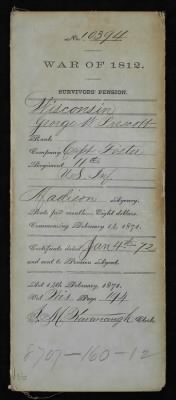 No. 10394
WAR OF 1812.
SURVIVORS' PENSION.
Wisconsin
George W. Prescott
Rank
Company Capt Foster
Regiment 11th
U.S. Inf
Madison Agency.
Rate per month, Eight dollars.
Commencing February 14, 1871.
Certificate dated Jan 4th 72
and sent to Pension Agent.
Act 14th February, 1871.
Vol. Wis Page 44
Kavanaugh Clerk.
8707-160-12